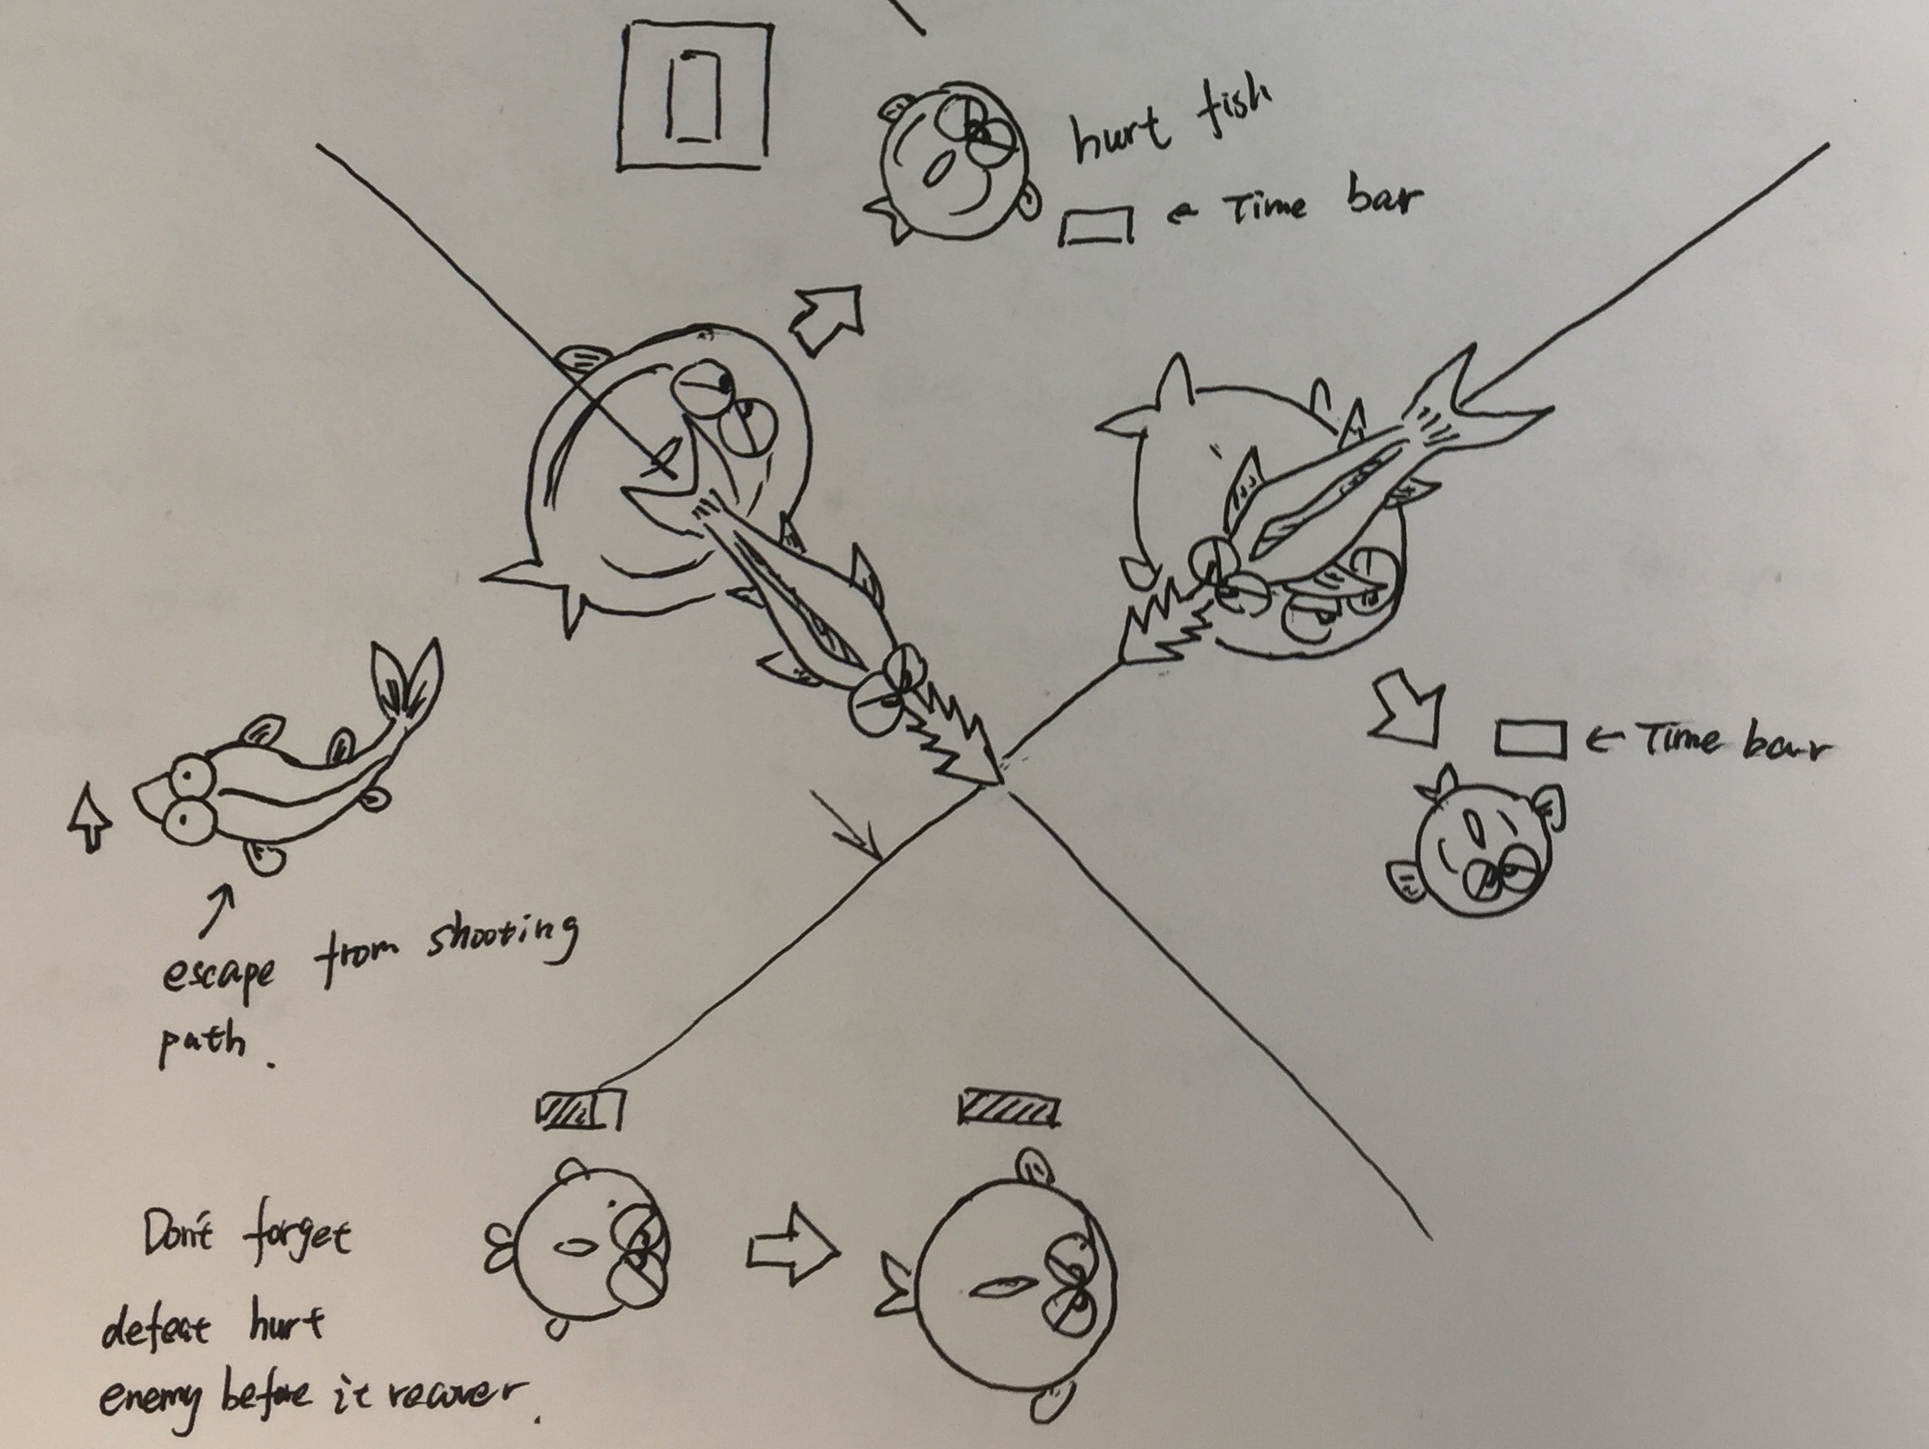 hurt fish
← Time bar
← Time bar
escape from shooting
path.
Don't forget
defeat hurt
enemy before it recover.